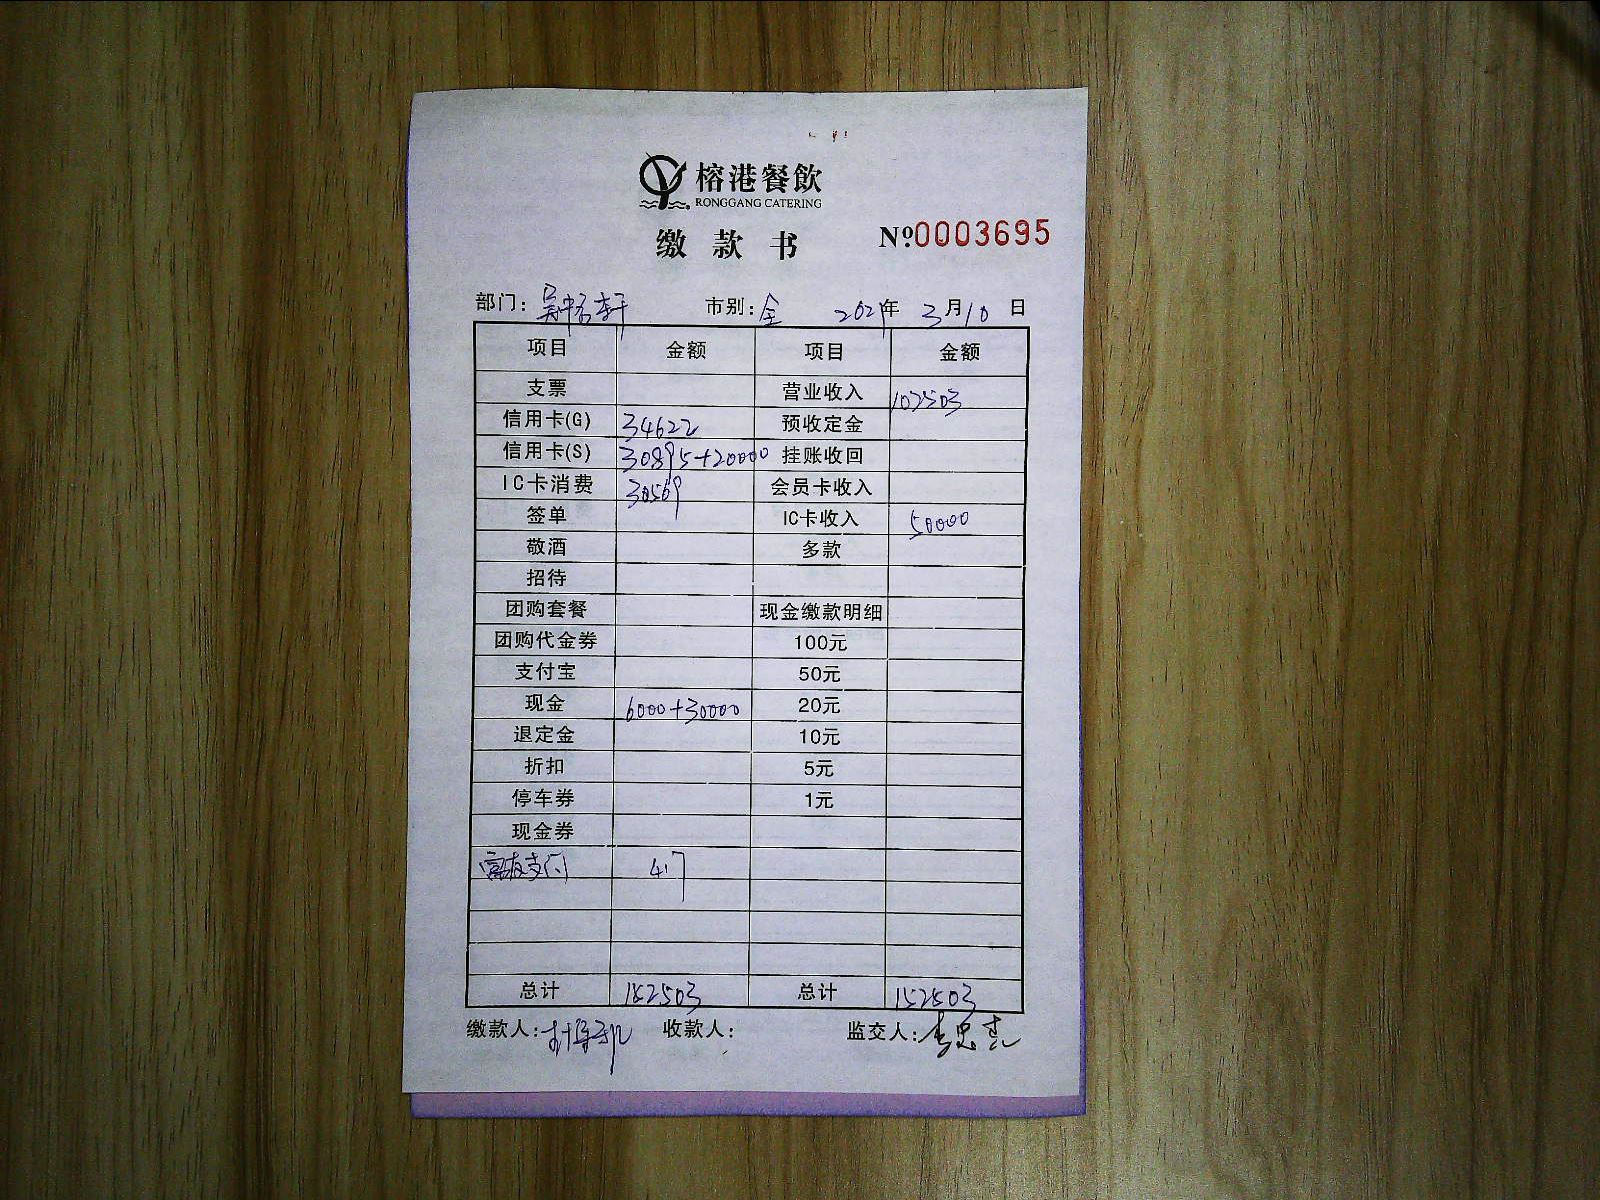 榕港餐飲
RONGGANG CATERING
缴款书
№0003695
部门： 市别：全 2021年 3月10日
项目 金额 项目 金额
支票 营业收入 102503
信用卡(G) 34622 预收定金
信用卡(S) 30895+20000 挂账收回
IC卡消费 30569 会员卡收入
签单 IC卡收入 50000
敬酒 多款
招待
团购套餐 现金缴款明细
团购代金券 100元
支付宝 50元
现金 6000+30000 20元
退定金 10元
折扣 5元
停车券 1元
现金券
富友支付 417
总计 152503 总计 152503
缴款人： 收款人： 监交人：